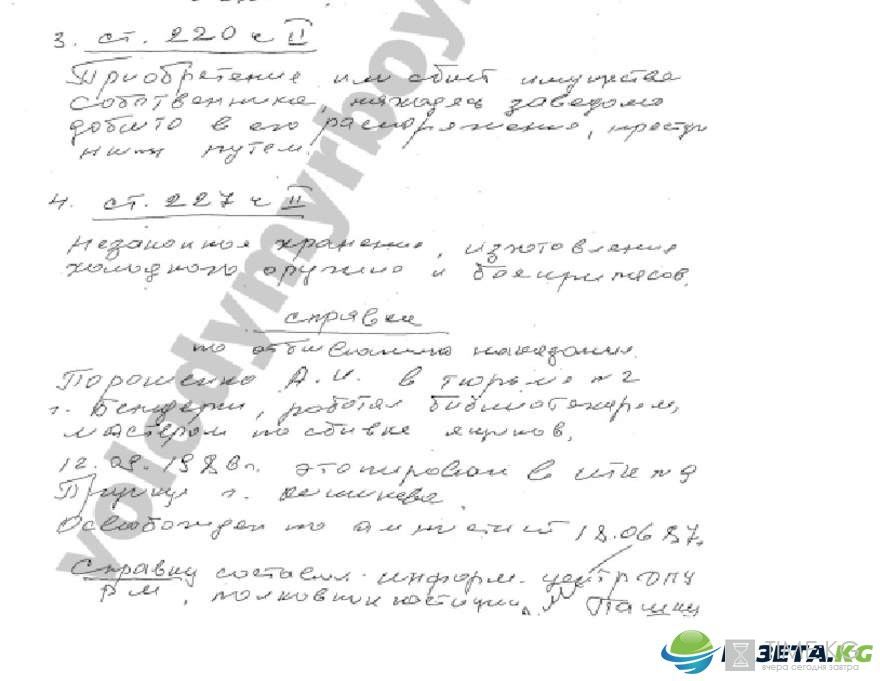 3. ст. 220 ч II
Приобретение или сбыт имущества
собственника, находясь заведомо
добыто в его распоряжение, преступ
ным путем.
4. ст. 227 ч II
Незаконное хранение, изготовление
холодного оружия и боеприпасов.
справка
по отбыванию наказания.
Порошенко А.И. в тюрьме №2
г. Бендеры, работал библиотекарем,
мастером по сбивке ящиков,
этапирован в ИТК №9
г. Кишинева.
Освобожден по амнистии 18.06 87г
Справку состав. информ. центр ОПУ
РМ, полковник юстиции Пашку
volodymyrboyko
ГАЗЕТА.KG
TIME.KG
вчера сегодня завтра